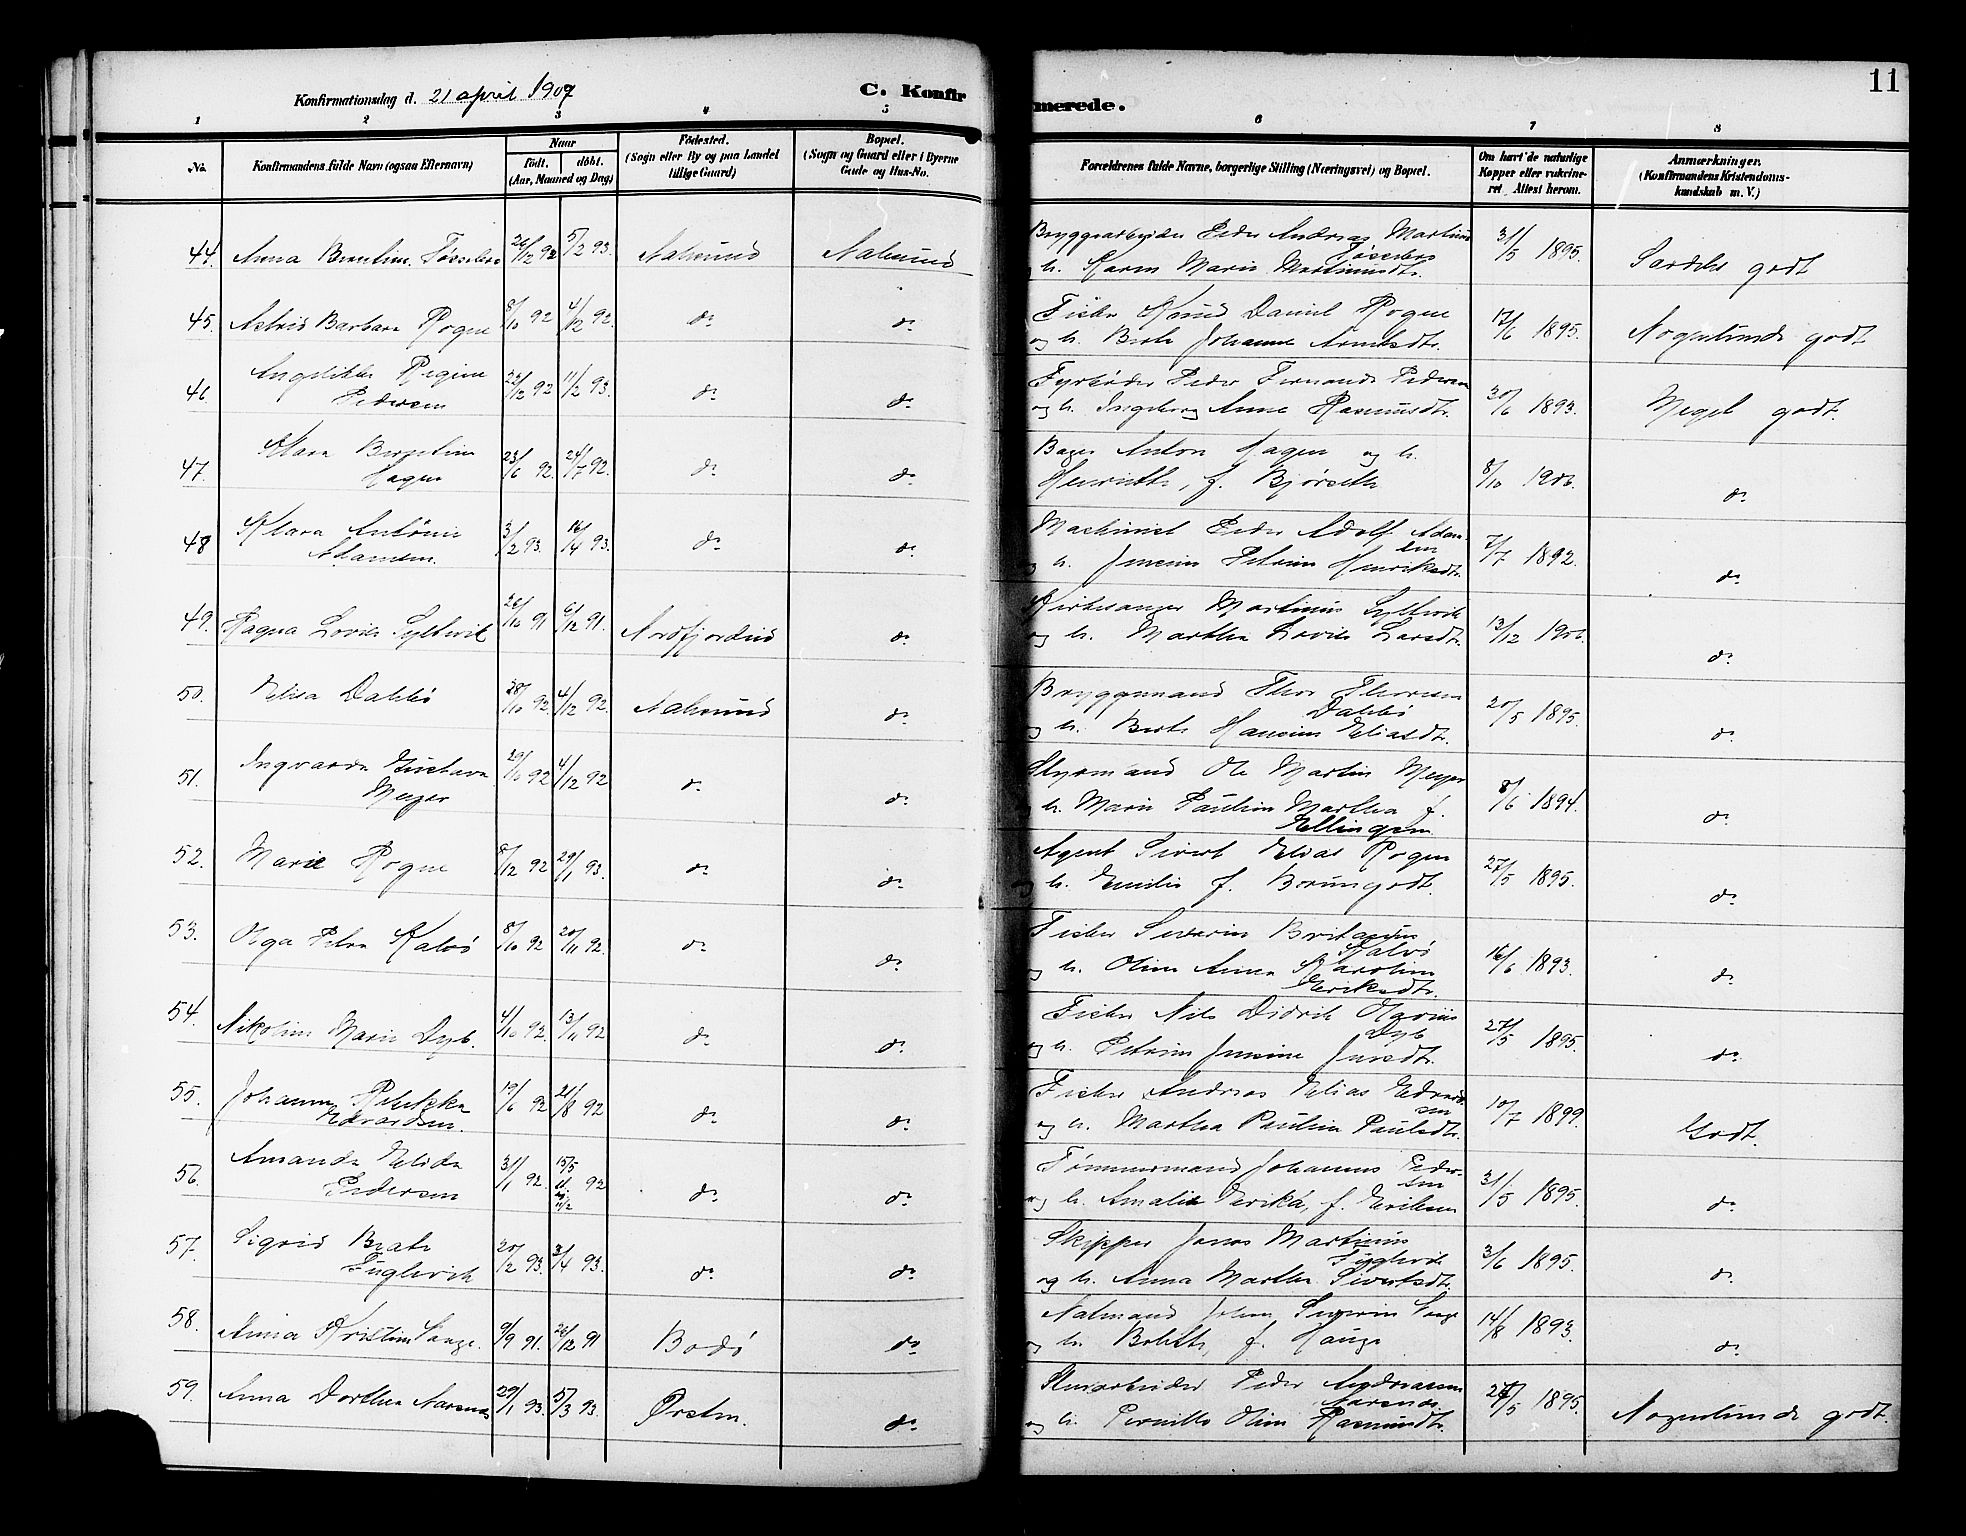 11
Konfirmationsdag d. 21 april 1907
C. Konfirmerede.
1 2 3 4 5 6 7 8
No.
Konfirmandens fulde Navn (ogsaa Efternavn)
Naar
født. døbt.
(Aar, Maaned og Dag)
Fødested.
(Sogn eller By og paa Landet
tillige Gaard)
Bopæl.
(Sogn og Gaard eller i Byerne
Gade og Hus-No.
Forældrenes fulde Navne, borgerlige Stilling (Næringsvei) og Bopæl.
Om havt de naturlige
Kopper eller vakcineret. Attest herom.
Anmærkninger.
(Konfirmandens Kristendomskundskab m. V.)
44. Anna Berntine 26/12 92 5/2 93. Aalesund Aalesund Bryggearbeider Peder Andreas Martinus
og h. Karen Marie 31/5 1895. Særdeles godt
45. Astrid Barbara Rogne 8/10 92 4/12 92. do do Fisker Knud Daniel Rogne
og h. Berte Johanne 17/6 1895. Nogenlunde godt
46. Angelikke Regine
Pedersen 23/12 92 11/2 93. do do Fyrbøder Peder Fernando Pedersen
og h. Ingeborg Anne Rasmusdtr. 30/6 1893. Meget godt
47. Klara Berntine
Hagen 23/6 92. 24/7 92. do do Bager Anton Hagen og h.
Henriette, f. Bjørseth 8/10 1906. do
48 Klara Antonie
Adamsen. 3/2 93. 16/4 93. do do Maskinist Peder Adolf Adamsen
og h. Jensine Petrine Henriksdtr. 7/7 1892. do
49. Ragna Lovise Syltevik 26/10 91 6/12 91. Nordfjordeid do Kirkesanger Martinus Syltevik
og h. Marthea Lovise Larsdtr. 13/12 1906. do
50. Elisa Dahlbø 28/10 92. 4/12 92. Aalesund do Bryggemand Thor Thorsen
Dahlbø
og h. Berte Hansine Eliasdtr. 20/5 1895. do
51. Ingvarda Gustava
Meyer 29/10 92 4/12 92 do do Styrmand Ole Martin Meyer
og h. Marie Pauline Marthea f.
Ellingsen 8/6 1894. do
52. Marie Rogne 8/12 92 29/1 93. do do Agent Sivert Elias Rogne
og h. Emilie f. Borungodt. 27/5 1895. do
53. Olga Petra Kalvø 8/10 92 20/11 92. do do Fisker Severin
Kalvø
og h. Oline Anna Karoline
Eriksdtr. 16/6 1893. do
54. Nikoline Marie Dyb. 4/10 92. 13/11 92 do do Fisker Nils Didrik Olavius
Dyb
og h. Petrine Jensine Jensdtr. 27/5 1895. do
55. Johanna Rebekka
Edvardsen. 19/6 92 21/8 92 do do Fisker Andreas Elias Edvardsen
og h. Marthea Pauline Paulsdtr. 10/7 1899. Godt.
56. Amanda Elida
Pedersen 31/1 92. 15/5 92 do do Tømmermand Johannes Pedersen
og h. Amalie Erika, f. Eriksen 31/5 1895. do
57. Sigrid Beate
Fuglevik 20/2 93. 3/4 93. do do Skipper Jonas Martinus
Fuglevik
og h. Anna Marthe Sivertsdtr. 3/6 1895. do
58. Anna Kristine 9/9 91. 26/12 91 Bodø do Johan Severin
og h. f. Hauge 14/8 1893. do
59. Anna Dorthea Aarsnes 29/1 93. 5/3 93. Ørsten. do Peder Andreassen
Aarsnes
og h. Pernille Oline Rasmusdtr. 27/5 1895. Nogenlunde godt.